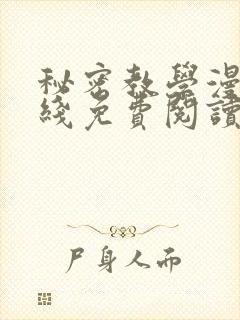 秘密教學漫
綫免費閱讀
尸身人而